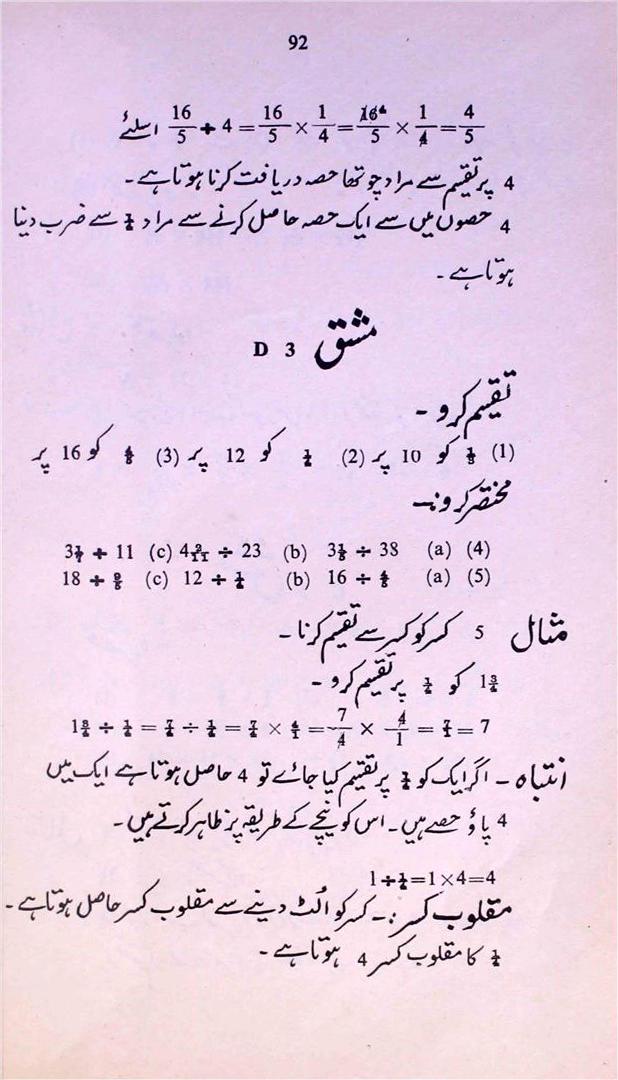 92
اسلئے 16/5 ÷ 4 = 16/5 × 1/4 = 16⁴/5 × 1/4 = 4/5
4 پر تقسیم سے مراد چوتھا حصہ دریافت کرنا ہوتا ہے۔
4 حصوں میں سے ایک حصہ حاصل کرنے سے مراد ¼ سے ضرب دینا
ہوتا ہے۔
مشق D 3
تقسیم کرو۔
(1) کو 10 پر (2) کو 12 پر (3) کو 16 پر
مختصر کرو:۔
(4) (a) ÷ 38 (b) ÷ 23 (c) ÷ 11
(5) (a) 16 ÷ (b) 12 ÷ ¼ (c) 18 ÷
مثال 5 کسر کو کسر سے تقسیم کرنا۔
1¾ کو ¼ پر تقسیم کرو۔
1¾ ÷ ¼ = 7/4 ÷ ¼ = 7/4 × 4/1 = 7/4 × 4/1 = 7/1 = 7
انتباہ۔ اگر ایک کو ¼ پر تقسیم کیا جائے تو 4 حاصل ہوتا ہے ایک میں
4 پاؤ حصے ہیں۔ اس کو نیچے کے طریقہ پر ظاہر کرتے ہیں۔
1÷¼=1×4=4
مقلوب کسر:۔ کسر کو اُلٹ دینے سے مقلوب کسر حاصل ہوتا ہے۔
¼ کا مقلوب کسر 4 ہوتا ہے۔